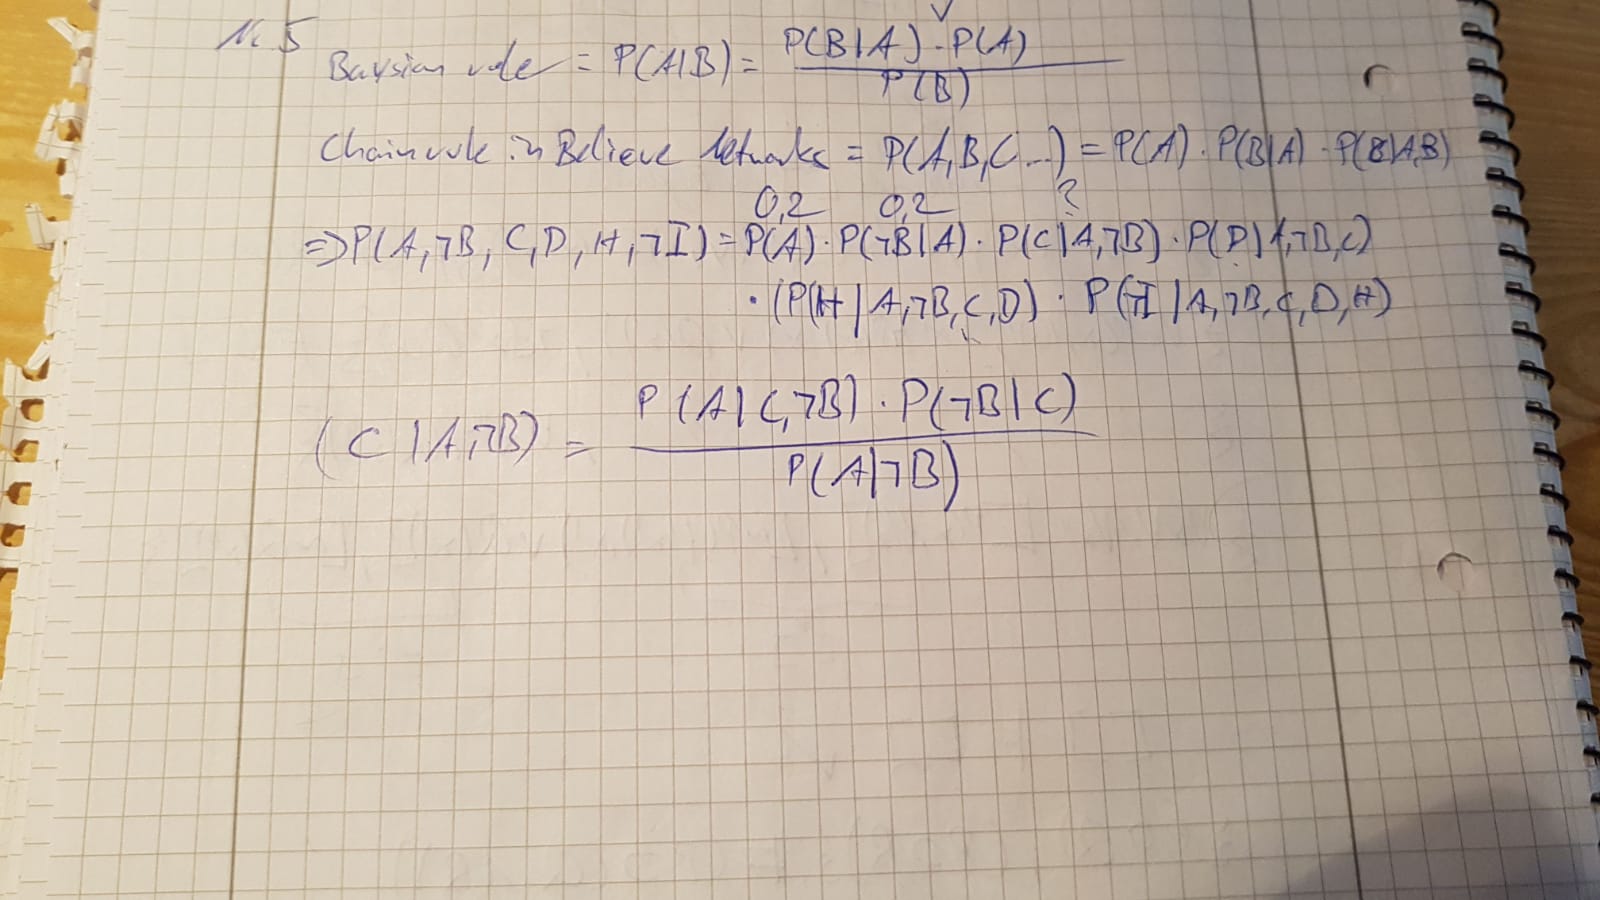 Nr. 5
Baysian rule = P(A|B) = P(B|A) · P(A) / P(B)
Chainrule in Believe Networks = P(A,B,C...) = P(A) · P(B|A) · P(C|A,B)
0,2 0,2 ?
=> P(A,¬B, C, D, H, ¬I) = P(A) · P(¬B|A) · P(C|A,¬B) · P(D|A,¬B,C)
· (P(H|A,¬B,C,D) · P(¬I|A,¬B,C,D,H)
(C|A,¬B) = P(A|C,¬B) · P(¬B|C) / P(A|¬B)